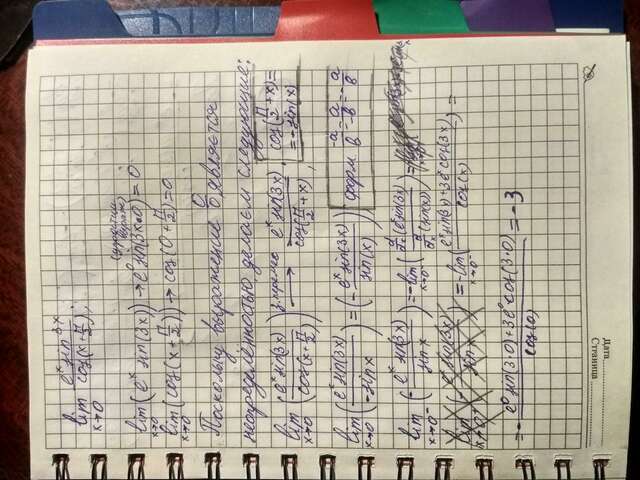 lim x→0 e^x sin 3x / cos(x + π/2);
lim x→0 (e^x sin(3x)) → e^0 sin(3×0) = 0
lim x→0 (cos(x + π/2)) → cos(0 + π/2) = 0
Поскольку выражение 0/0 является
неопределённостью, делаем следующие:
lim x→0 (e^x sin(3x) / cos(x + π/2)) → e^x sin(3x) / cos(π/2 + x),
cos(π/2 + x) = = -sin(x)
lim x→0 (e^x sin(3x) / -sin x) = (- e^x sin(3x) / sin(x))
-a/b = a/-b = - a/b
lim x→0 (- e^x sin(3x) / sin x) = - lim x→0 (d/dx (e^x sin(3x)) / d/dx (sin(x))) =
= - lim x→0 (e^x sin(3x) + 3e^x cos(3x) / cos(x)) =
= - e^0 sin(3·0) + 3e^0 cos(3·0) / cos(0) = -3
Дата
Страница